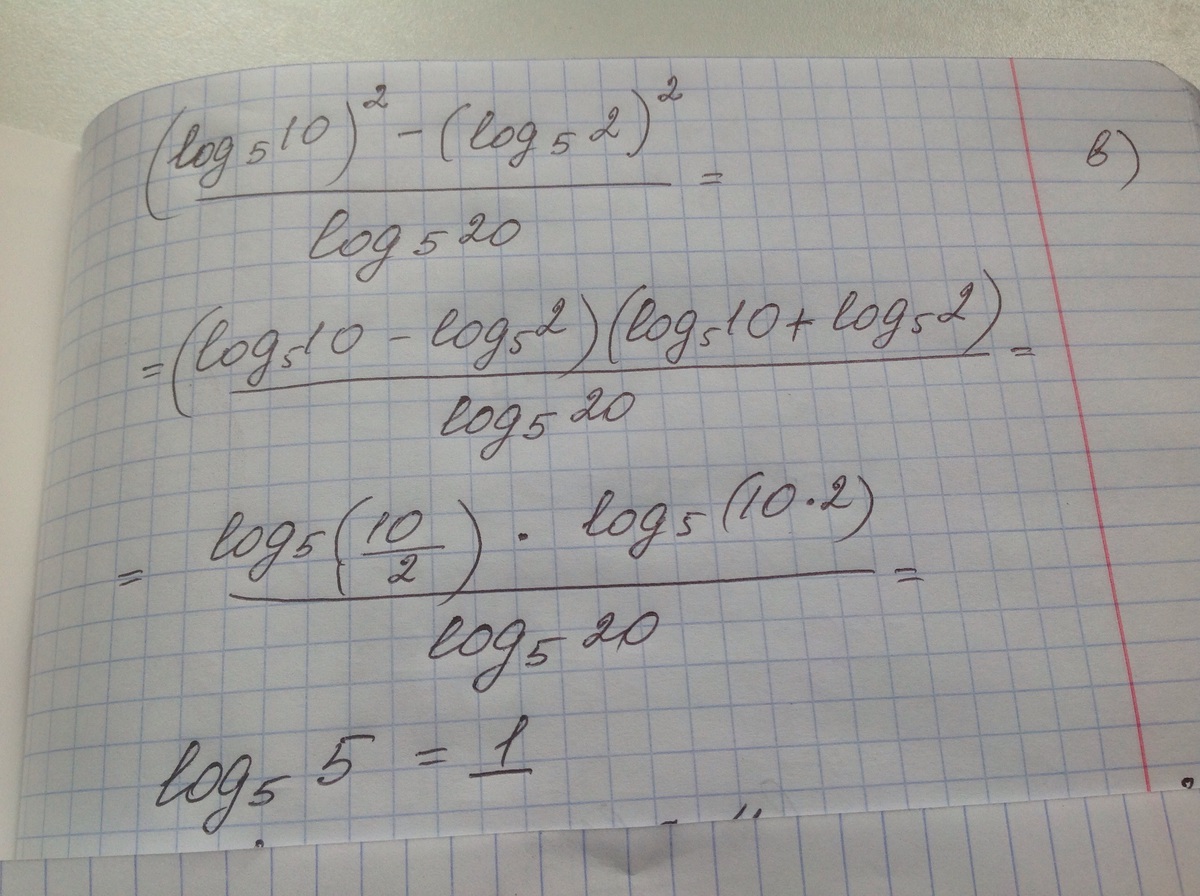 (log₅10)² − (log₅2)²
=
log₅20
в)
= (log₅10 − log₅2)(log₅10 + log₅2)
=
log₅20
= log₅(10/2) · log₅(10·2) =
log₅20
log₅5 = 1